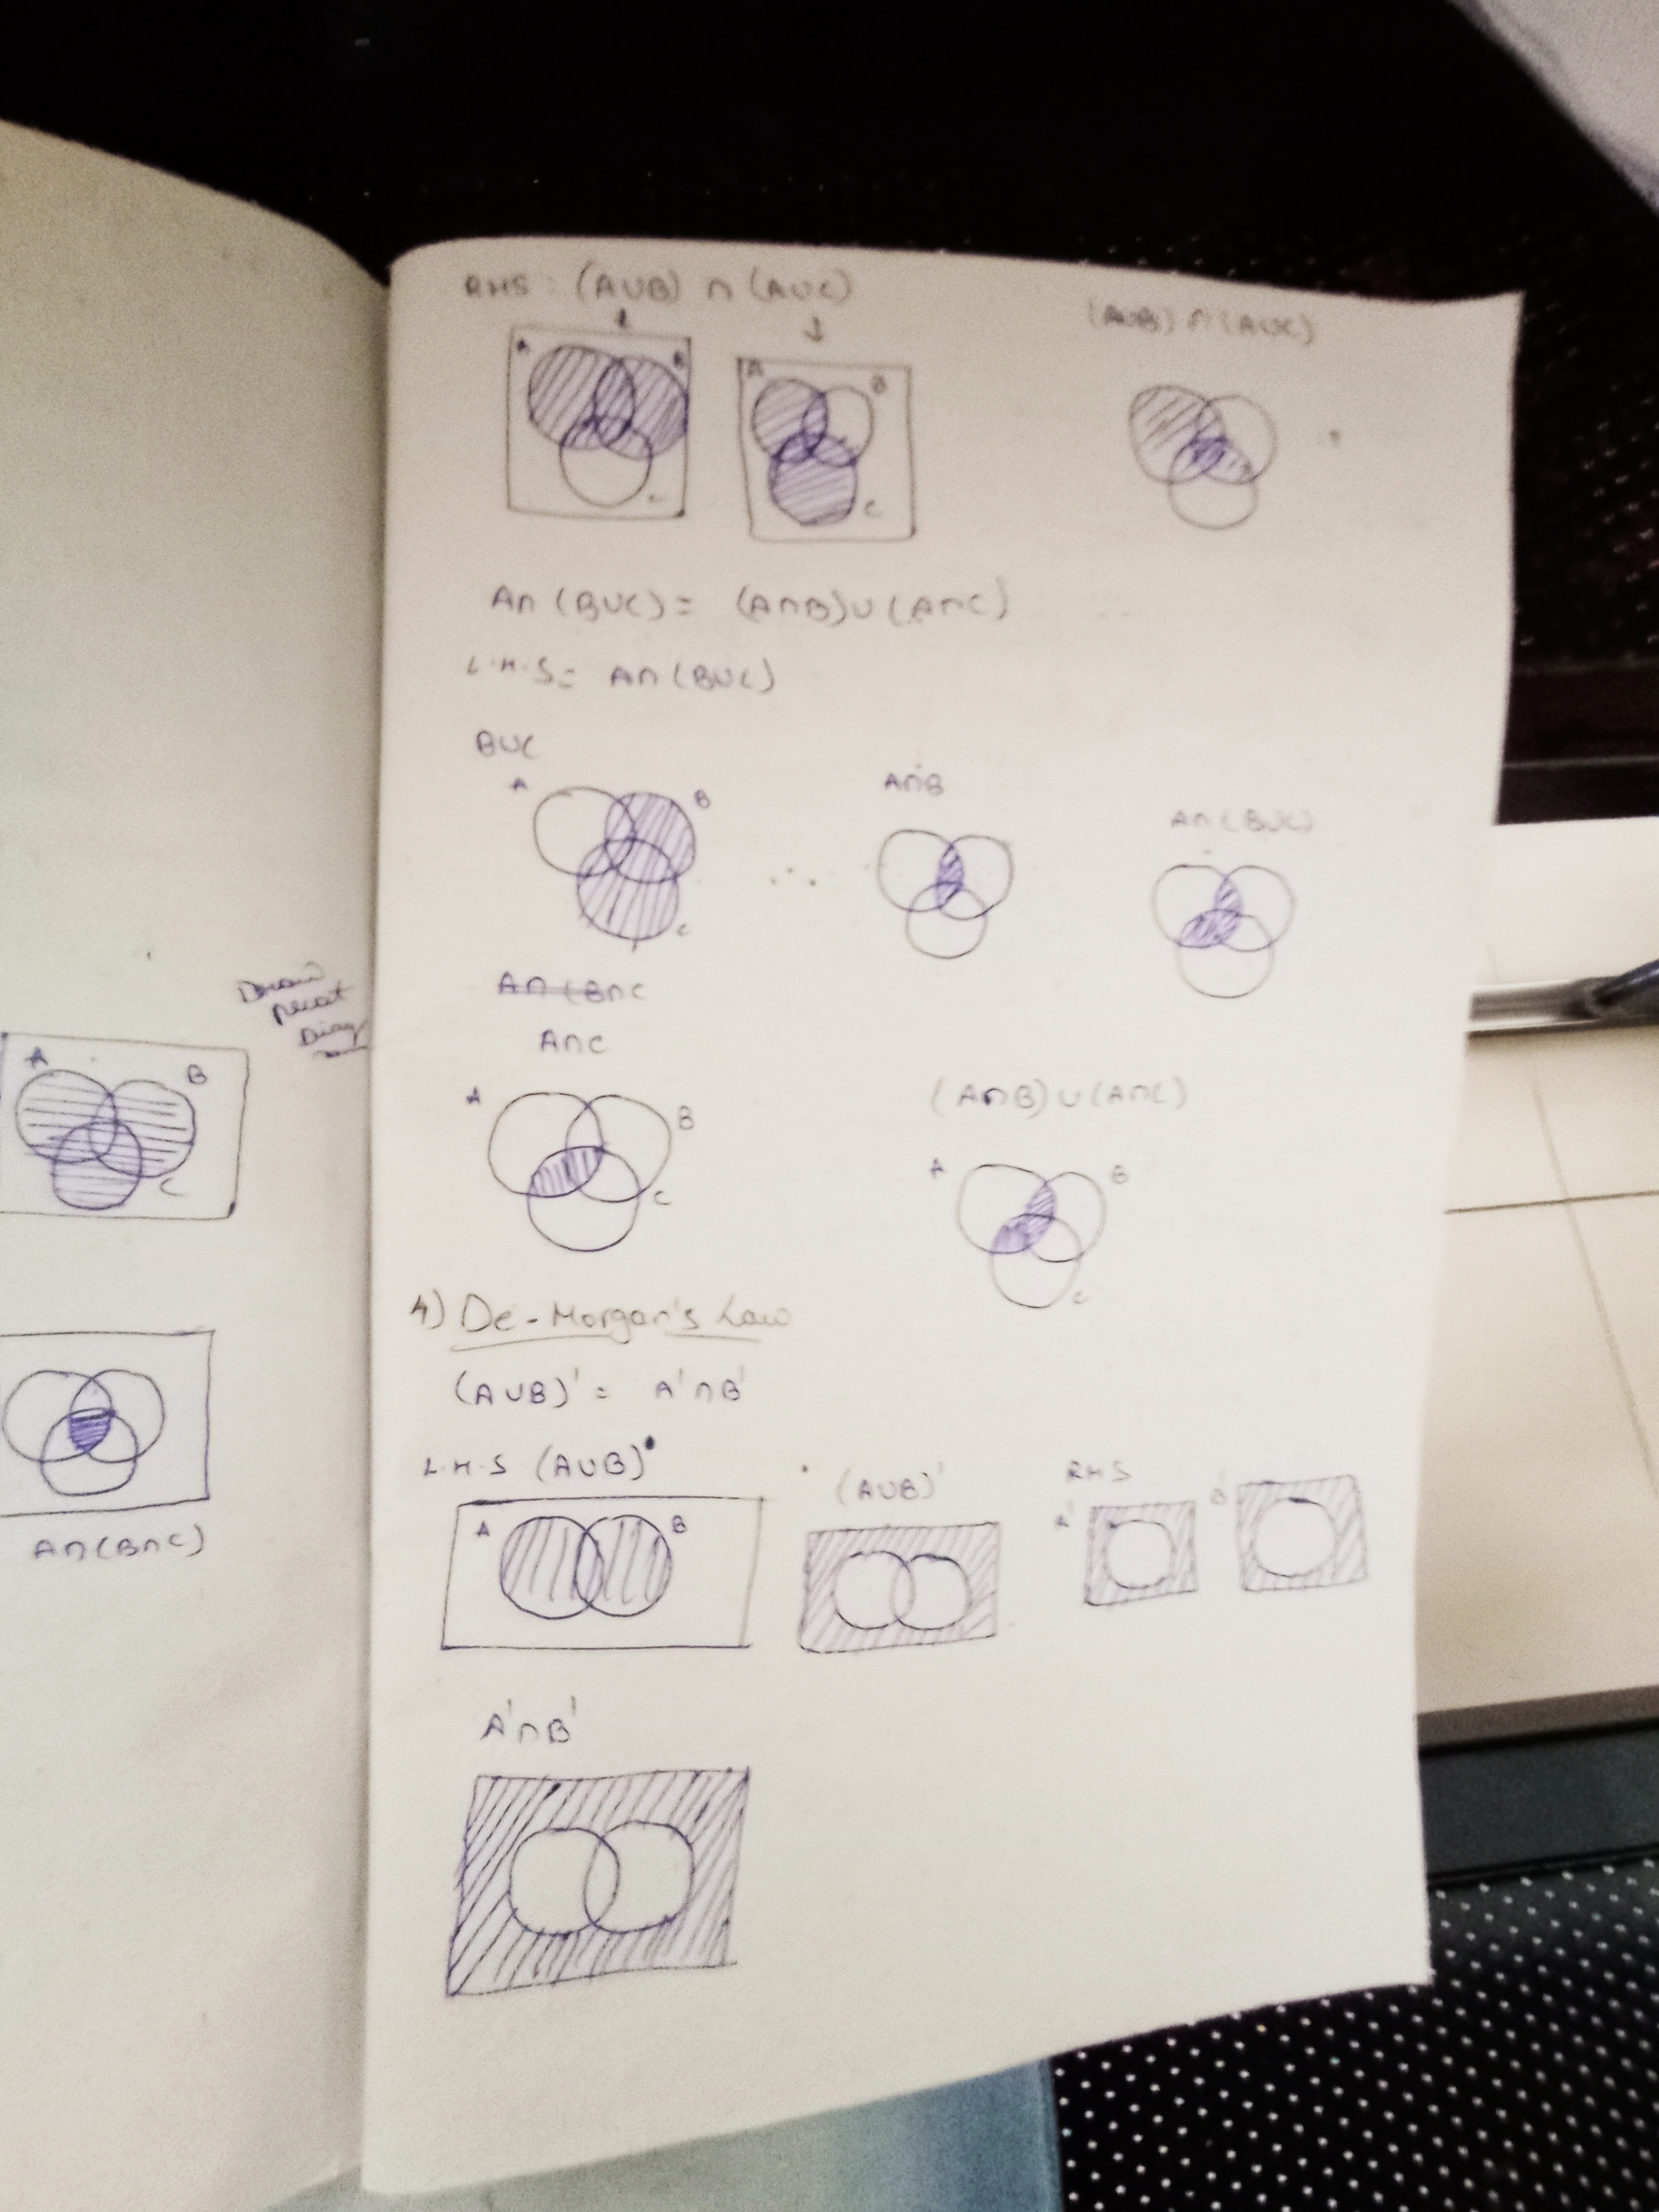 Draw
neat
A
B
C
A∩(B∩C)
RHS : (A∪B) ∩ (A∪C)
(A∪B) ∩ (A∪C)
A B
C
A B
C
A∩ (B∪C) = (A∩B)∪(A∩C)
L.H.S = A∩ (B∪C)
B∪C
A B
C
A∩B
A∩(B∪C)
A∩(B∩C
A∩C
A B
C
(A∩B)∪(A∩C)
A B
C
4) De-Morgan's Law
(A∪B)' = A'∩B'
L.H.S (A∪B)
A B
(A∪B)'
RHS
A' B'
A'∩B'